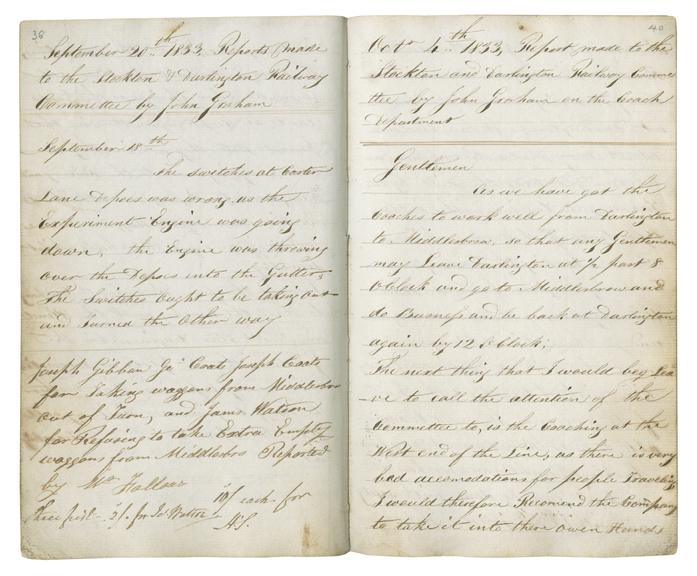 38
September 20th 1833, Reports made
to the Stockton & Darlington Railway
Committee by John Graham
September 18th
The switches at Carter
Lane Depos was wrong as the
Experiment Engine was going
down, the Engine was throwing
over the Depos into the Gutter
The Switches Ought to be taking out
and turned the Other way
Joseph Gibbon Coats Joseph Coats
for taking waggons from Middlesbro
out of Turn, and James Watson
for Refusing to take Extra Empty
waggons from Middlesbro Reported
by Wm
10/ each for
first 5/ for
40
Octr 4th 1833, Report made to the
Stockton and Darlington Railway Commit
tee by John Graham on the Coach
Department
Gentlemen
As we have got the
Coaches to work well from Darlington
to Middlesbrow, so that any Gentleman
may Leave Darlington at ½ past 8
OClock and go to Middlesbrow and
do Business and be back at Darlington
again by 12 OClock;
The next thing that I would beg Lea
-ve to call the attention of the
Committee to, is the Coaching at the
West end of the Line, as there is very
bad accomodations for people Traveling
I would therefore Recomend the Company
to take it into there owen Hands